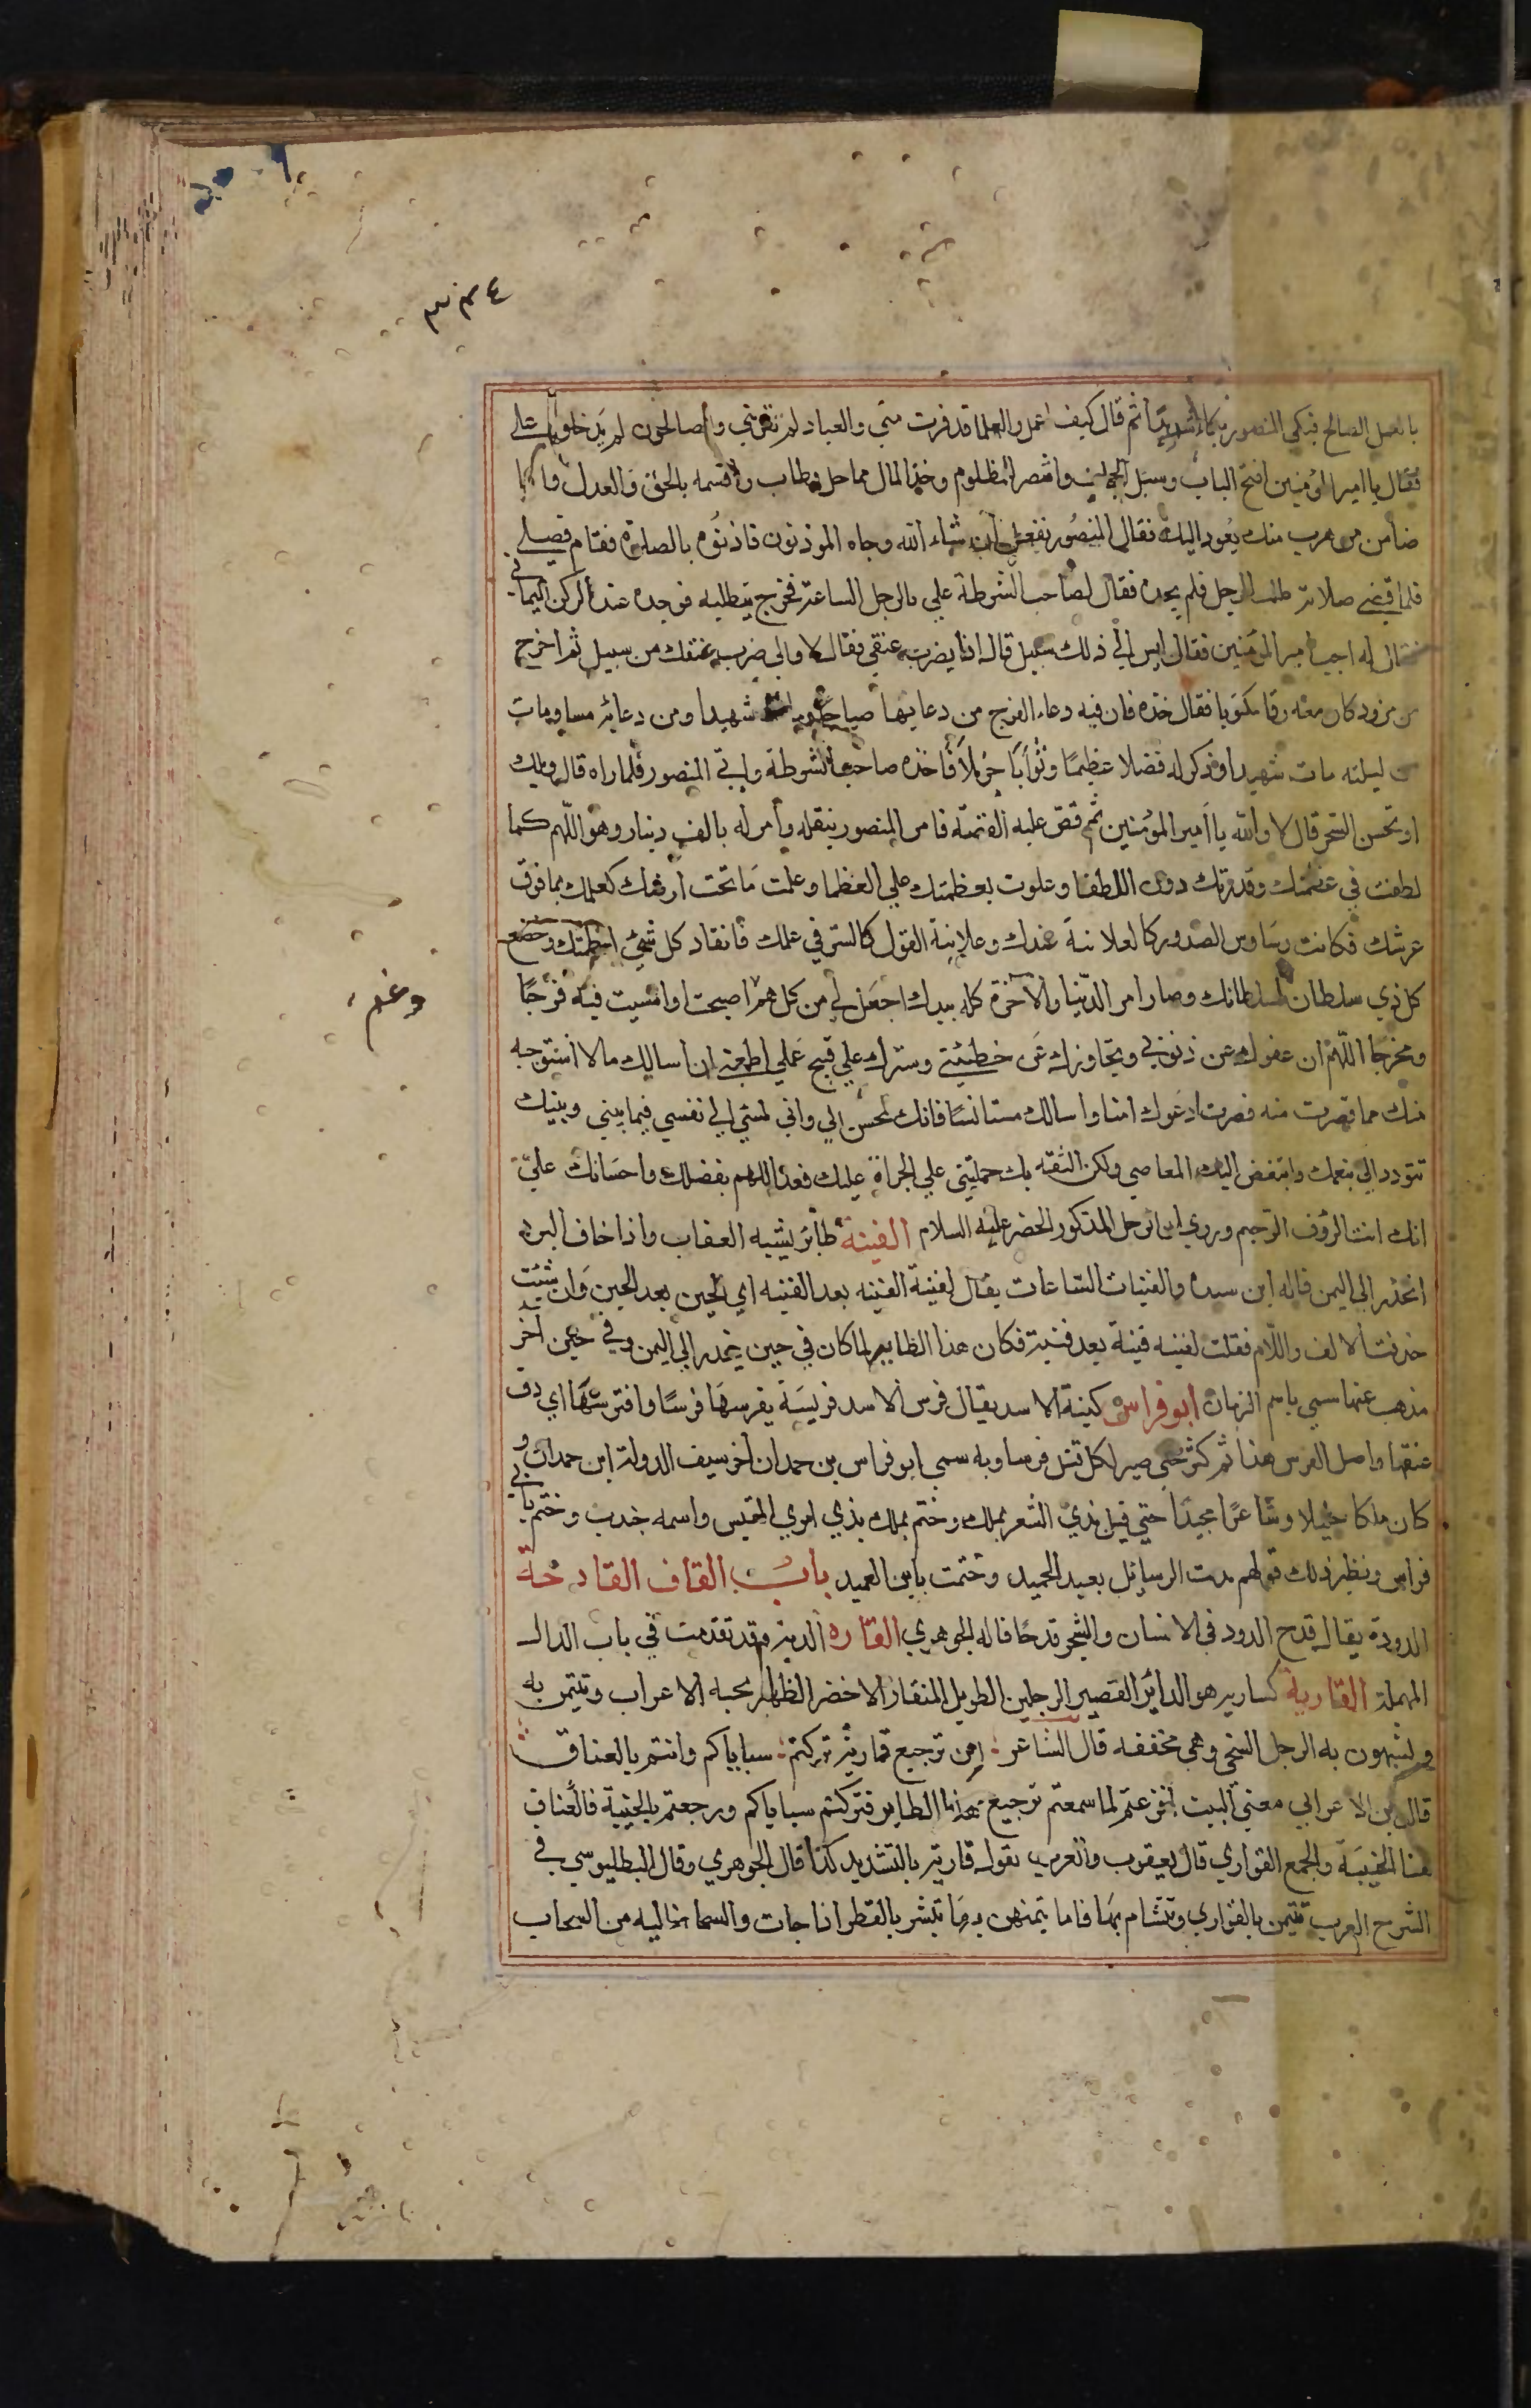 ٣٣٤
بالعمل الصالح فبكي المنصور بكاء شديدًا ثم قال كيف اعمل والعلما قد فرت مني والعباد لم تقربني والصالحون لم يدخلوا
فقال يا امير المؤمنين افتح الباب وسهل الحجاب وانتصر للمظلوم وخذ المال مما حل وطاب واقسمه بالحق والعدل وانا
ضامن من هرب منك يعود اليك فقال المنصور نفعل ان شاء الله وجاه الموذنون فاذنوه بالصلوة فقام فصلي
فلما قضي صلاته طلب الرجل فلم يجده فقال لصاحب الشرطة علي بالرجل الساعة فخرج يتطلبه فوجده عند الركن اليماني
فقال له اجب امير المؤمنين فقال ليس الي ذلك سبيل قال اذا يضرب عنقي فقال لا والي ضرب عنقك من سبيل ثم اخرج
من مزود كان معه رقا مكتوبا فقال خذه فان فيه دعاء الفرج من دعا بها صباحا ومات شهيدا ومن دعا به مسا ومات
من ليلته مات شهيدا وذكر له فضلا عظيمًا وثوابًا جزيلاً فاخذه صاحب الشرطة واتي المنصور فلما راه قال ويلك
او تحسن السحر قال لا والله يا امير المؤمنين ثم قصّ عليه القصة فامر المنصور بنقله وأمر له بالف دينار وهو اللّهم كما
لطفت في عظمتك وقدرتك دون اللطفا وعلوت بعظمتك علي العظما وعلمت مَا تحت ارضك كعلمك بما فوق
عرشك فكانت وسَاوس الصدور كالعلانية عندك وعلانية القول كالسّر في علمك فانقاد كل شيئ لعظمتك وخضع
كل ذي سلطان لسلطانك وصار امر الدّنيا والآخرة كله بيدك اجعَل لي من كل هم اصبحت او امسيت فيه فرجًا
وغم
ومخرجا اللّهم ان عفوك عن ذنوبي وتجاوزك عَن خطيئتي وسترك علي قبيح عَملي اطمعني ان اسالك ما لا استوجبه
منك مما قصرت منه فصرت ادعَوك امنا واسالك مستانسًا فانك لمحسن الي واني لمسئ الي نفسي فيما بيني وبينك
تتودد الي بنعمك واتبغض اليك بالمعاصي ولكن الثقه بك حملتني علي الجراة عليك فعد اللهم بفضلك واحسَانك عليّ
انك انت الرّؤف الرّحيم وروي ان الرجل المذكور الخضر عليه السلام الفينة طائر يشبه العقاب واذا خاف البرد
انحذر الي اليمن قاله ابن سيده والفينات الساعات يقال لقيته الفينه بعد الفينه اي الحين بعد الحين وَان شئت
حذفت الالف واللّام فقلت لقيته فينة بعد فينة فكان هذا الطاير لما كان في حين ينحدر الي اليمن وفي حين اخر
مذهب عنها سمي باسم الزمان ابو فراس كنية الاسد يقال فرس الاسد فريسَة يفرسهَا فرسًا وافترسَهَا اي دق
عنقها واصل الفرس هذا ثم كثر حتي صير لكل قتل فرسا وبه سمي ابو فراس بن حمدان اخو سيف الدولة ابن حمدان و
كان ملكا جليلا وشاعرًا مجيدًا حتي قيل بدي الشعر بملك وختم بملك بدي بامري القيس واسمه خندب وختم بابي
فراس ونظير ذلك قولهم بدت الرسايل بعبد الحميد وختمت بابن العميد باب القاف القادحة
الدودة يقال قدح الدود في الانسان والشجر قدحًا قاله الجوهري القاره الدبة وقد تقدمت في باب الدال
المهملة القارية كسارية هو الدائر القصير الرجلين الطويل المنقار الاخضر الظهر تحبه الاعراب وتتيمن به
ويشبهون به الرجل السخي وهي مخففه قال الشاعر: امن ترجيع قارية تركتم: سباياكم وانتم بالعناق
قال بن الاعرابي معني البيت لفزعتم لما سمعتم ترجيع هذا الطاير فتركتم سباياكم ورجعتم بالخيبة فالعناق
هنا الخيبَة والجمع القواري قال يعقوب والعرب تقول قارية بالتشديد كذا قال الجوهري وقال البطليوسي في
الشرح العرب تتيمن بالقواري وتتشام بهَا فاما تيمنهن بهَا تبشر بالقطر اذا جات والسما خاليه من السحاب